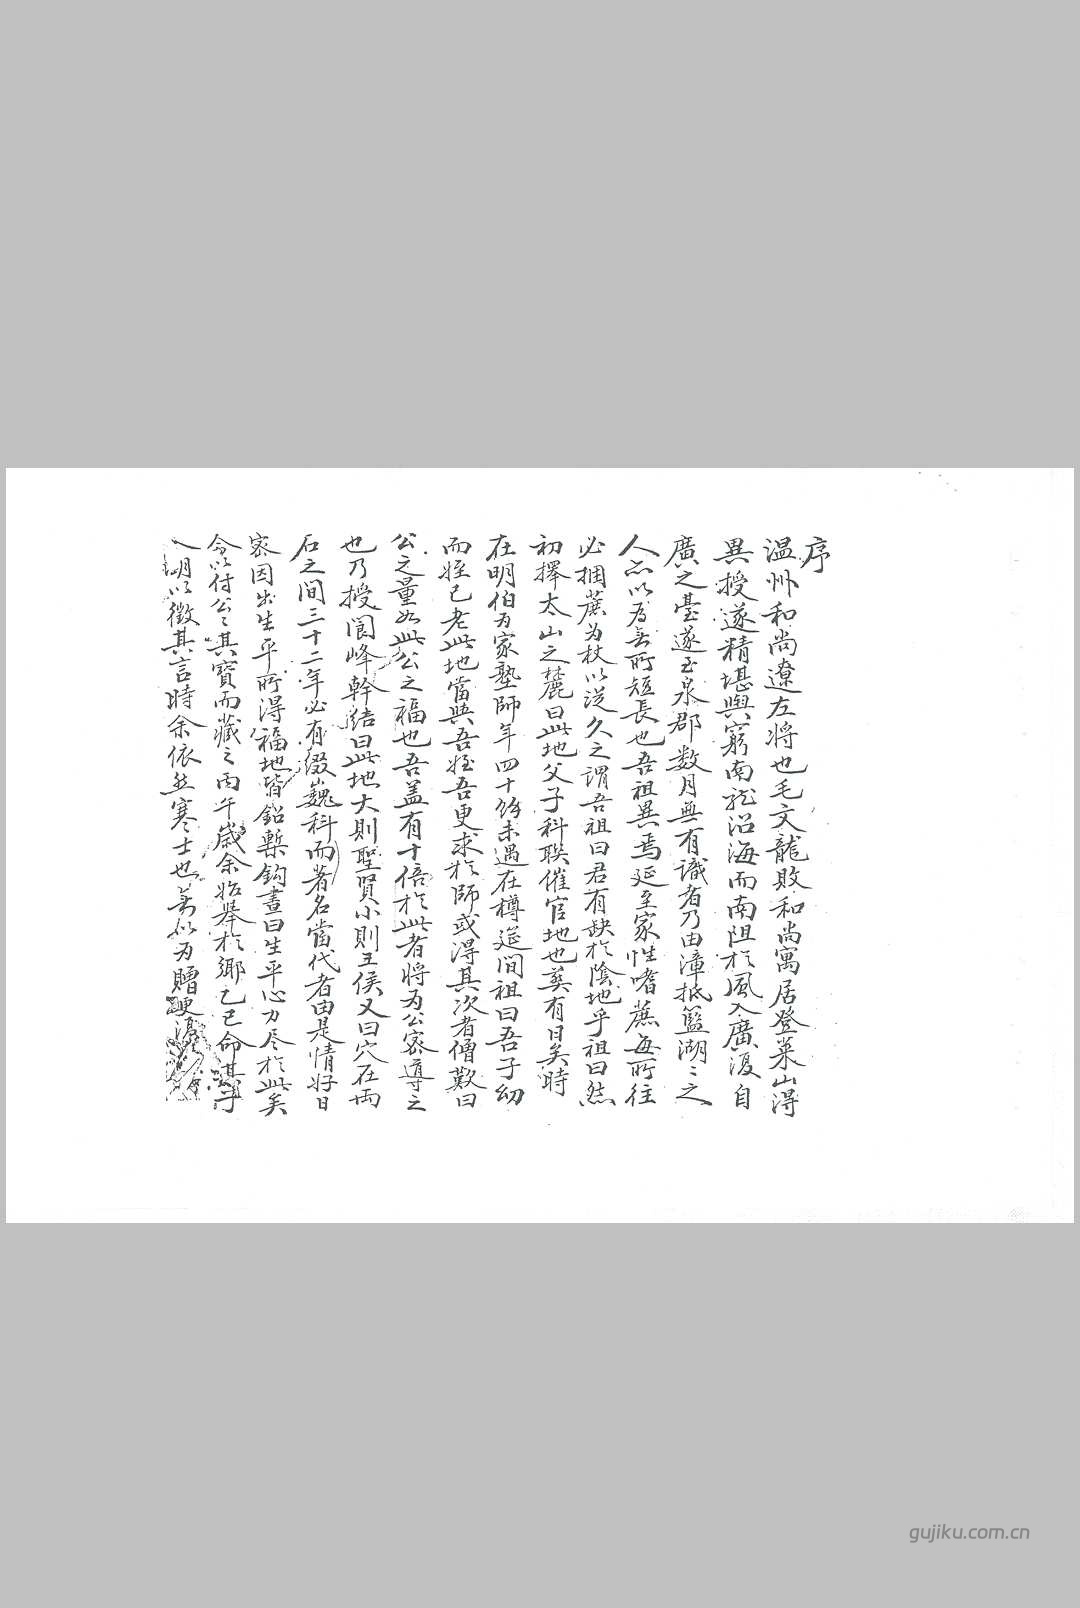 序
温州和尚遼左將也毛文龍敗和尚寓居登萊山得
異授遂精堪輿窮南龍沿海而南阻於風入廣復自
廣之臺遂至泉郡数月無有識者乃由漳抵籃湖〻之
人亦以為無所短長也吾祖異焉延至家性嗜蔗每所往
必捆蔗为杖以從久之謂吾祖曰君有缺於陰地乎祖曰然
初擇太山之麓曰此地父子科聯催官地也葬有日矣時
在明伯为家塾師年四十餘未遇在樽筵間祖曰吾子幼
而姪已老此地當與吾姪吾更求於師或得其次者僧歎曰
公之量如此公之福也吾盖有十倍於此者將为公密導之
也乃授閬峰幹結曰此地大則聖賢小則王侯又曰穴在両
石之間三十二年必有掇巍科而著名當代者由是情好日
密因出生平所得福地皆鉛槧鈎畫曰生平心力尽於此矣
令以付公〻其寶而藏之丙午歲余始舉於鄉乙巳命其子
明以徵其言時余依然寒士也若以为贈
gujiku.com.cn